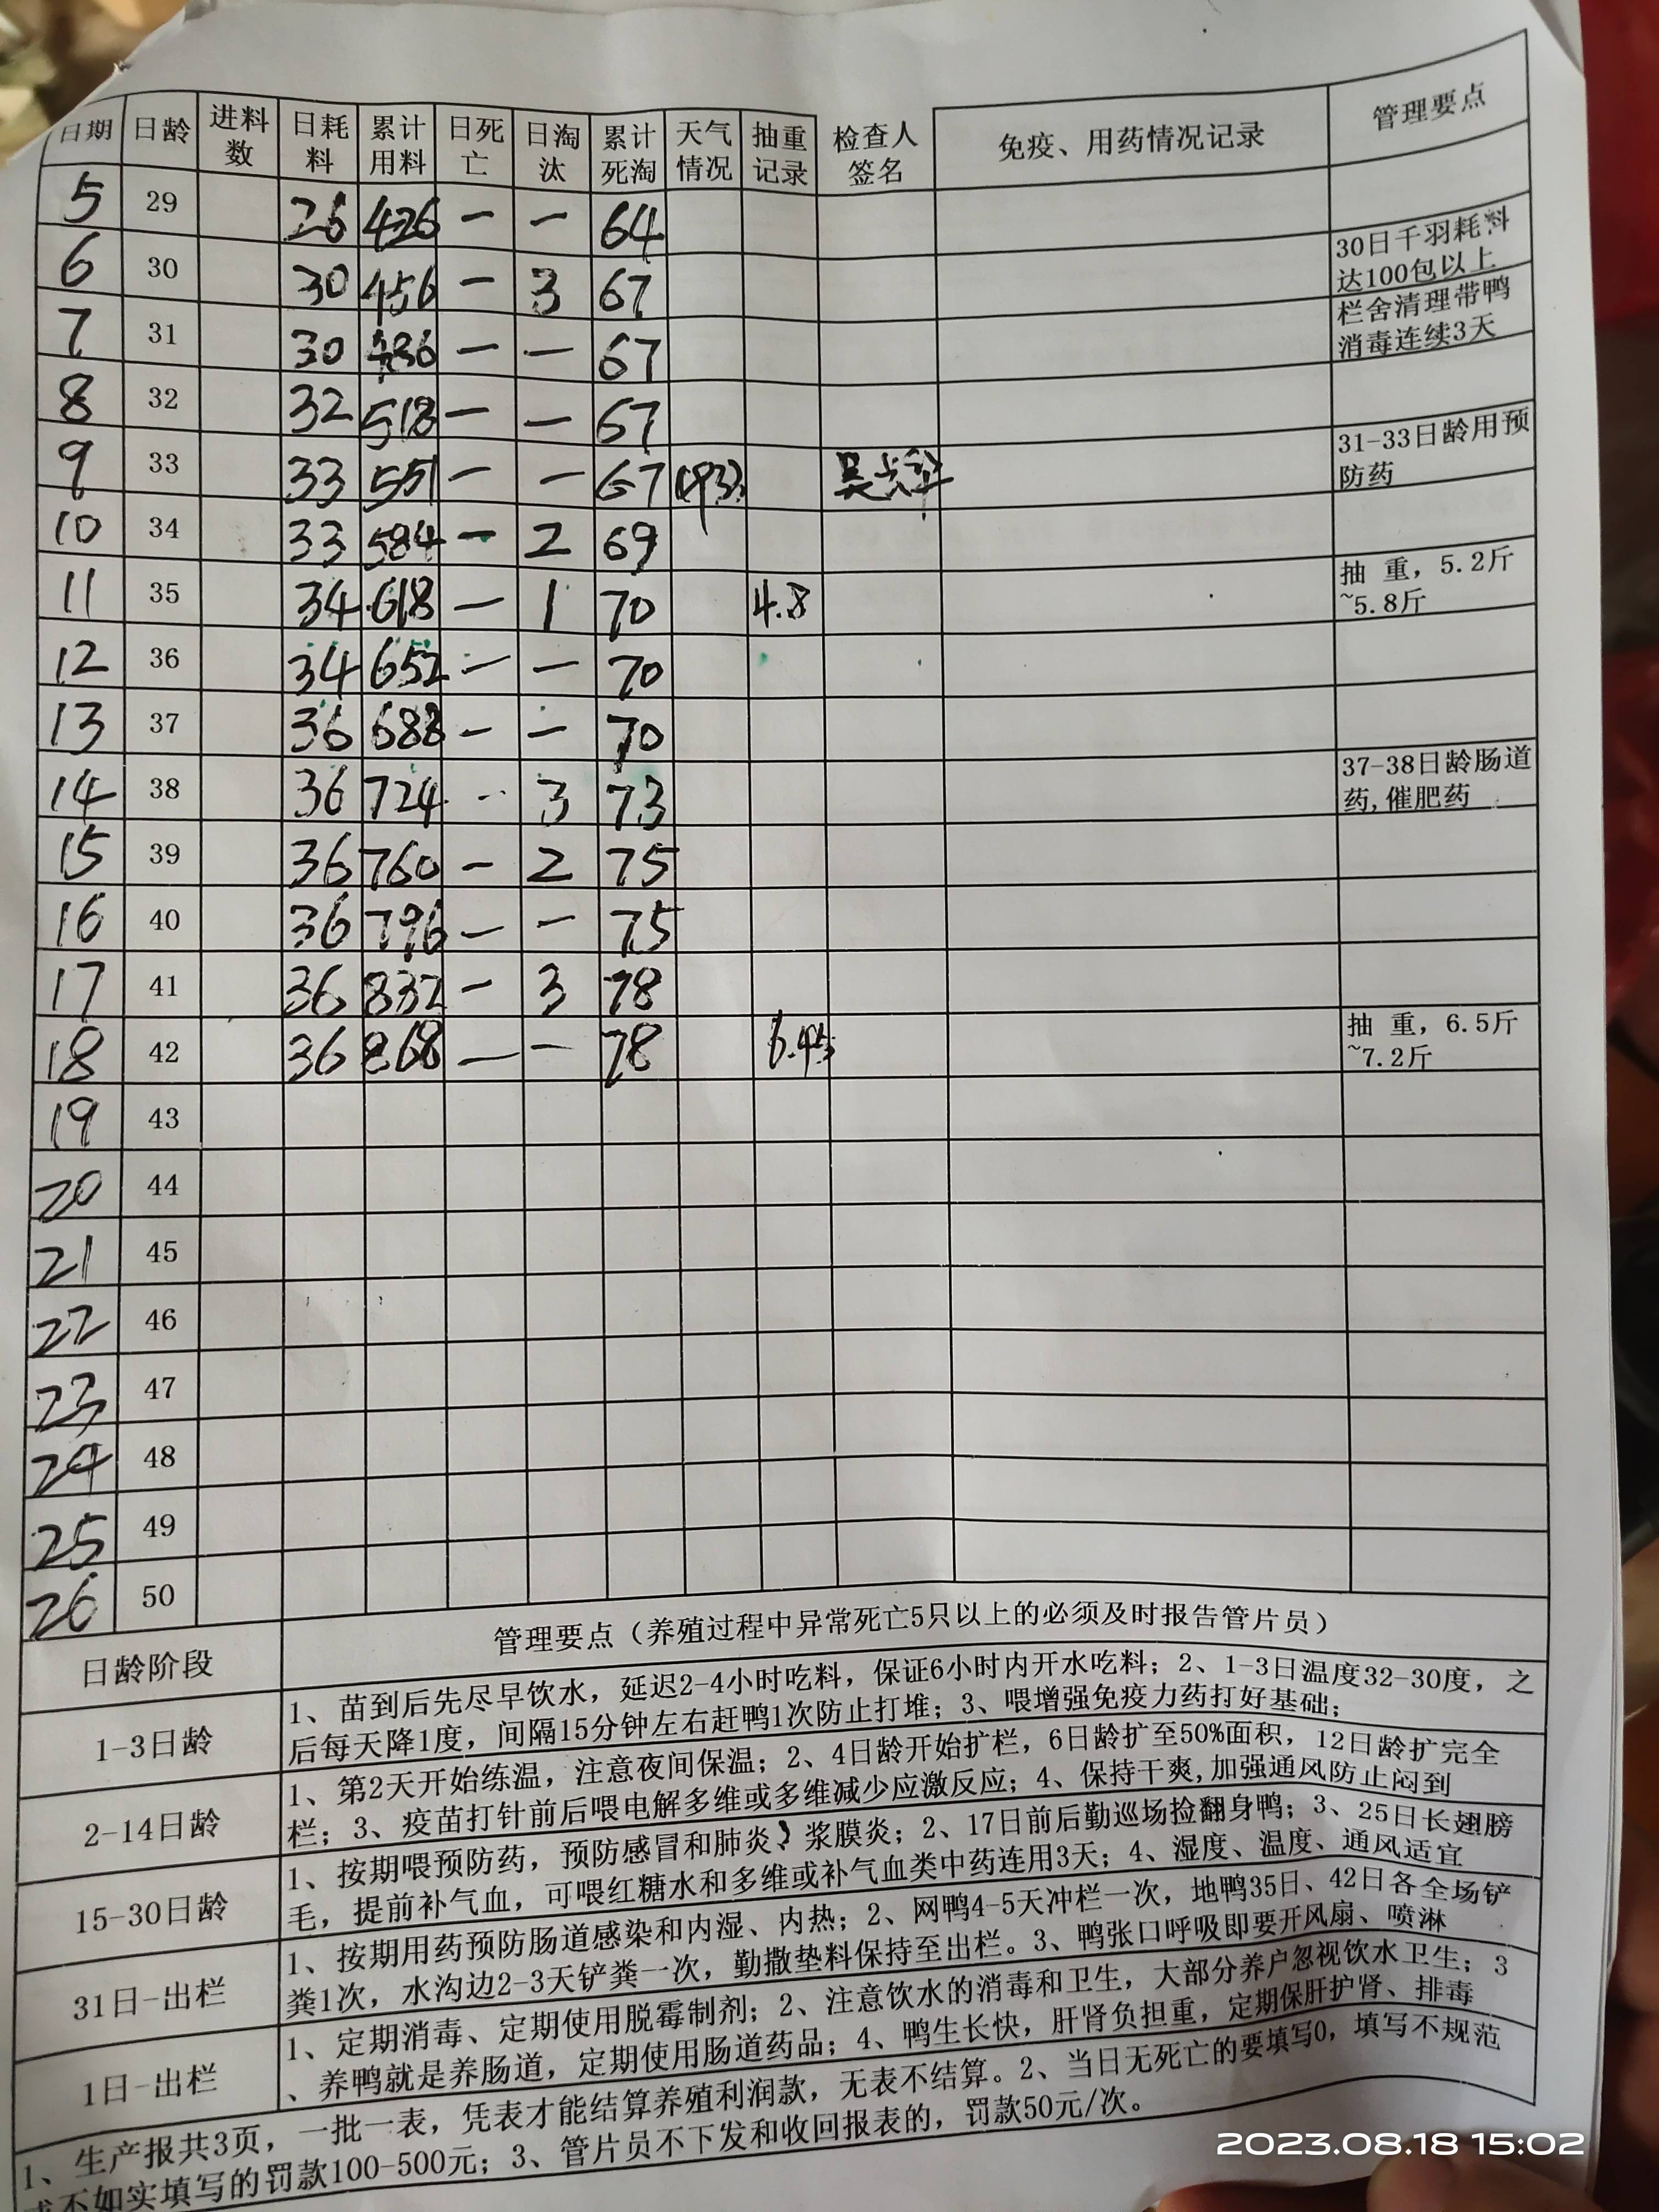 日期 日龄 进料数 日耗料 累计用料 日死亡 日淘汰 累计死淘 天气情况 抽重记录 检查人签名 免疫、用药情况记录 管理要点
5 29 26 426 — — 64
6 30 30 456 — 3 67 30日千羽耗料达100包以上
7 31 30 486 — — 67 栏舍清理带鸭消毒连续3天
8 32 32 518 — — 67
9 33 33 551 — — 67 31-33日龄用预防药
10 34 33 584 — 2 69
11 35 34 618 — 1 70 4.8 抽 重，5.2斤~5.8斤
12 36 34 652 — — 70
13 37 36 688 — — 70
14 38 36 724 — 3 73 37-38日龄肠道药,催肥药
15 39 36 760 — 2 75
16 40 36 796 — — 75
17 41 36 832 — 3 78
18 42 36 868 — — 78 6.45 抽 重，6.5斤~7.2斤
19 43
20 44
21 45
22 46
23 47
24 48
25 49
26 50
日龄阶段 管理要点（养殖过程中异常死亡5只以上的必须及时报告管片员）
1-3日龄
1、苗到后先尽早饮水，延迟2-4小时吃料，保证6小时内开水吃料；2、1-3日温度32-30度，之
后每天降1度，间隔15分钟左右赶鸭1次防止打堆；3、喂增强免疫力药打好基础；
2-14日龄
1、第2天开始练温，注意夜间保温；2、4日龄开始扩栏，6日龄扩至50%面积，12日龄扩完全
栏；3、疫苗打针前后喂电解多维或多维减少应激反应；4、保持干爽,加强通风防止闷到
15-30日龄
1、按期喂预防药，预防感冒和肺炎、浆膜炎；2、17日前后勤巡场捡翻身鸭；3、25日长翅膀
毛，提前补气血，可喂红糖水和多维或补气血类中药连用3天；4、湿度、温度、通风适宜
31日-出栏
1、按期用药预防肠道感染和内湿、内热；2、网鸭4-5天冲栏一次，地鸭35日、42日各全场铲
粪1次，水沟边2-3天铲粪一次，勤撒垫料保持至出栏。3、鸭张口呼吸即要开风扇、喷淋
1日-出栏
1、定期消毒、定期使用脱霉制剂；2、注意饮水的消毒和卫生，大部分养户忽视饮水卫生；3
、养鸭就是养肠道，定期使用肠道药品；4、鸭生长快，肝肾负担重，定期保肝护肾、排毒
1、生产报共3页，一批一表，凭表才能结算养殖利润款，无表不结算。2、当日无死亡的要填写0，填写不规范
或不如实填写的罚款100-500元；3、管片员不下发和收回报表的，罚款50元/次。
2023.08.18 15:02